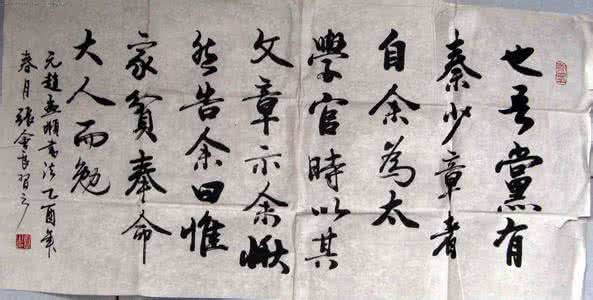 也吾黨有
秦少章者
自余為太
學官時以其
文章示余愀
然告余曰惟
家貧奉命
大人而勉
元趙孟頫書法乙酉年
春月張會習之